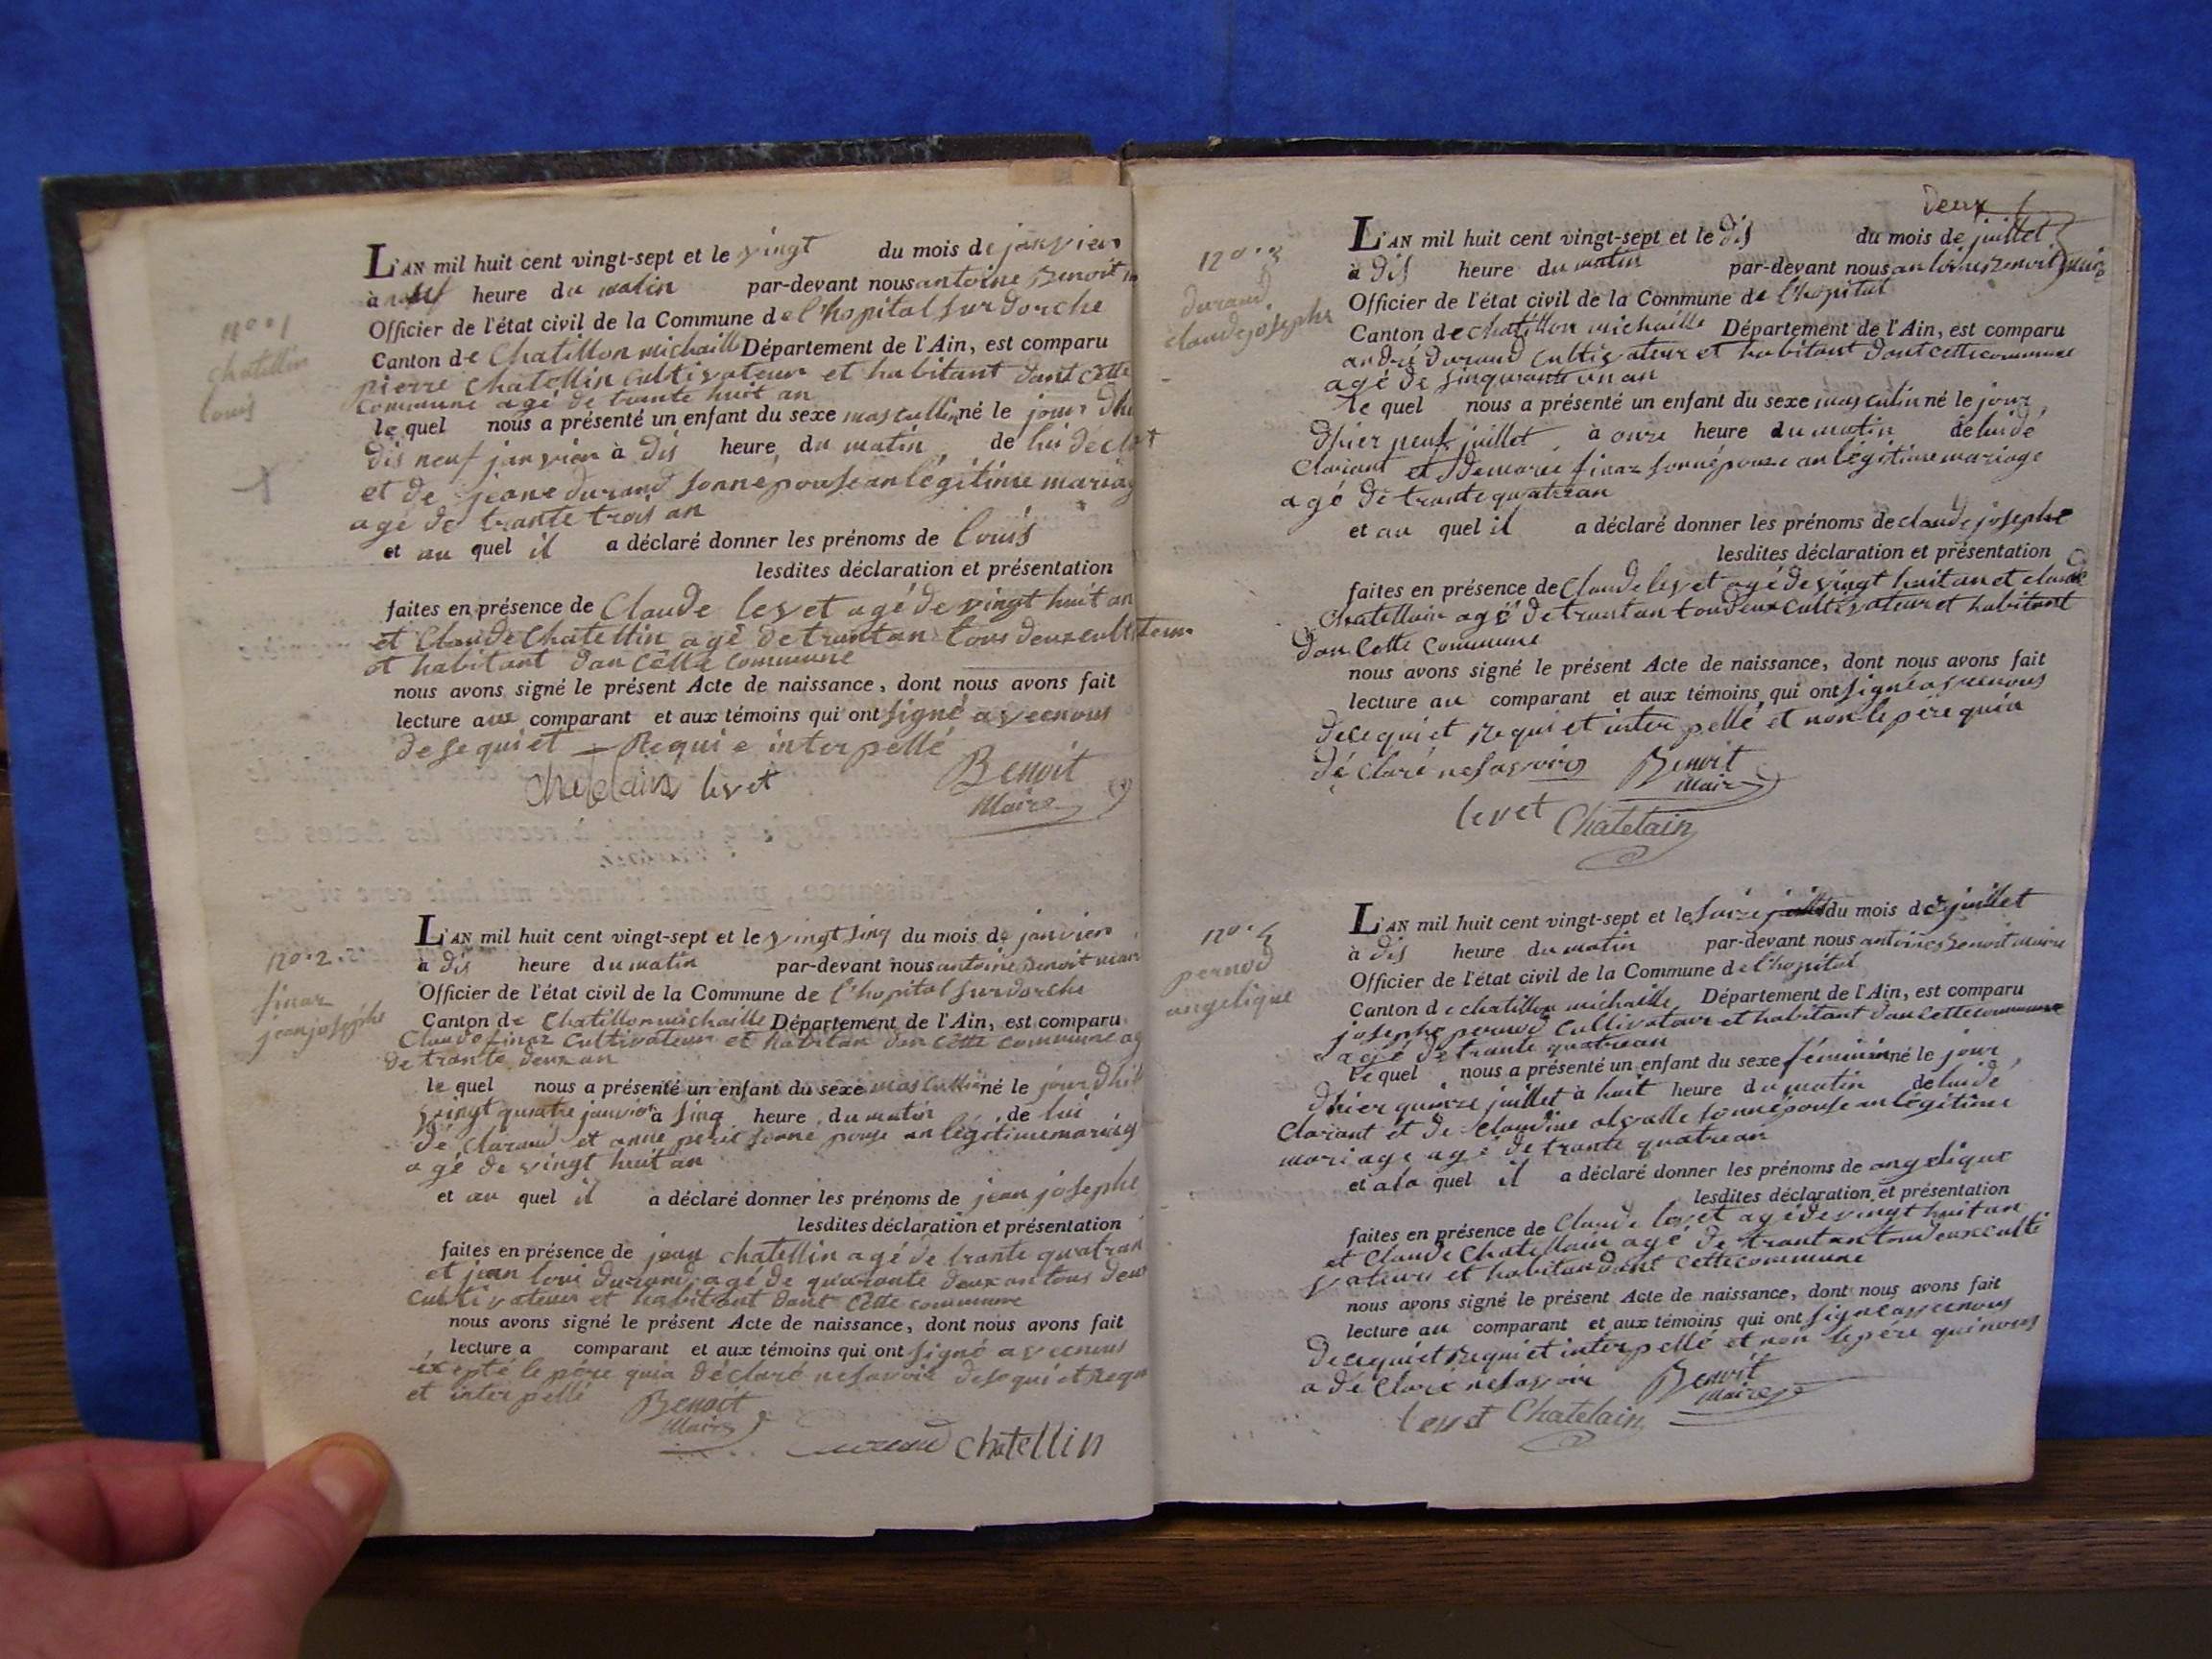 n°. 1
chatellin
louis
L'AN mil huit cent vingt-sept et le vingt du mois de janvier
à neuf heure du matin par-devant nous antoine Benoit
Officier de l'état civil de la Commune de l'hopital sur dorche
Canton de Chatillon michaille Département de l'Ain, est comparu
pierre chatellin cultivateur et habitant dant cette
commune agé de trante huit an
le quel nous a présenté un enfant du sexe mascullin né le jour dhi
dis neuf janvier à dis heure du matin de lui décla
et de jeane durand sonnepouse an légitime mariag
agé de trante trois an
et au quel il a déclaré donner les prénoms de louis
lesdites déclaration et présentation
faites en présence de Claude levet agé de vingt huit an
et Claude Chatellin agé de trantan tous deux
et habitant dan cette commune
nous avons signé le présent Acte de naissance, dont nous avons fait
lecture aux comparant et aux témoins qui ont signé avecnous
desequiet Requi e interpellé
Chatelain levet Benoit
Maire
n°. 2.
finaz
jean josephe
L'AN mil huit cent vingt-sept et le vingt sinq du mois de janvier
à dis heure du matin par-devant nous antoine Benoit mair
Officier de l'état civil de la Commune de l'hopital sur dorche
Canton de Chatillon michaille Département de l'Ain, est comparu
Claude finaz cultivateur et habitan dan cette commune ag
de trante deux an
le quel nous a présenté un enfant du sexe mascullin né le jour dhi
vingt quatre janvier à sinq heure du matin de lui
dé claraud et anne peric sonne pouse an légitime mariag
agé de vingt huit an
et au quel il a déclaré donner les prénoms de jean josephe
lesdites déclaration et présentation
faites en présence de jean chatellin agé de trante quatran
et jean loui durand agé de quarante deux an tous deux
cultivateur et habitant dant cette commune
nous avons signé le présent Acte de naissance, dont nous avons fait
lecture a comparant et aux témoins qui ont signé avecnous
éxcepté le pére quia déclaré nesavoir desequi et requi
et interpellé Benoit
Maire durand chatellin
deux
n°. 3
durand
claude josephe
L'AN mil huit cent vingt-sept et le dis du mois de juillet
à dis heure du matin par-devant nous antoine Benoit maire
Officier de l'état civil de la Commune de l'hopital
Canton de chatillon michaille Département de l'Ain, est comparu
andré durand cultivateur et habitant dant cette commune
agé de sinquante un an
le quel nous a présenté un enfant du sexe masculin né le jour
dhier neuf juillet à onze heure du matin delui dé
clarant et demarie finaz sonnépouze an légitime mariage
agé de trante quatran
et au quel il a déclaré donner les prénoms de claude josephe
lesdites déclaration et présentation
faites en présence de Claude levet agé de vingt huit an et claude
Chatellain agé de trantan toudeux cultivateur et habitant
dan cette commune
nous avons signé le présent Acte de naissance, dont nous avons fait
lecture au comparant et aux témoins qui ont signé avecnous
desequiet Requi et inter pellé et non lepére quia
dé claré nesavoir Benoit
Maire
levet Chatelain
n°. 4
pernod
angelique
L'AN mil huit cent vingt-sept et le saize juillet du mois de juillet
à dis heure du matin par-devant nous antoine Benoit maire
Officier de l'état civil de la Commune de l'hopital
Canton de chatillon michaille Département de l'Ain, est comparu
josephe pernod cultivateur et habitant dan cette commune
agé de trante quatrean
le quel nous a présenté un enfant du sexe féminin né le jour
dhier quinze juillet à huit heure du matin delui dé
clarant et de Claudine alvalle sonnépouse an légitime
mariage agé de trante quatrean
et ala quel il a déclaré donner les prénoms de angelique
lesdites déclaration et présentation
faites en présence de Claude levet agé de vingt huit an
et Claude Chatellain agé de trantan toudeux culti
vateur et habitan dant cette commune
nous avons signé le présent Acte de naissance, dont nous avons fait
lecture au comparant et aux témoins qui ont signé avecnous
desequiet Requi et interpellé et non lepére qui nous
a dé claré nesavoir Benoit
Maire
levet Chatelain